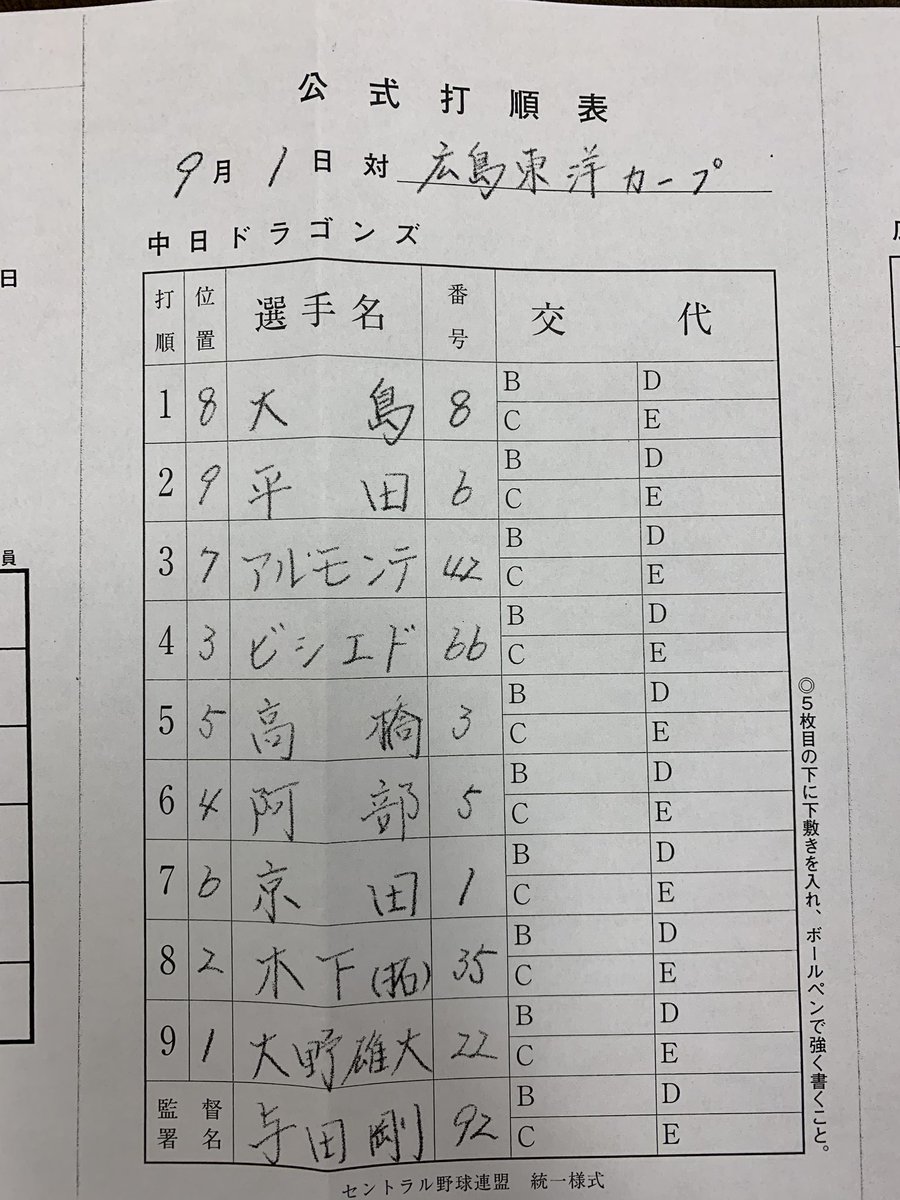 公式打順表
9月1日対 広島東洋カープ
中日ドラゴンズ
打順 位置 選手名 番号 交代
1 8 大島 8 B D
C E
2 9 平田 6 B D
C E
3 7 アルモンテ 42 B D
C E
4 3 ビシエド 66 B D
C E
5 5 高橋 3 B D
C E
6 4 阿部 5 B D
C E
7 6 京田 1 B D
C E
8 2 木下(拓) 35 B D
C E
9 1 大野雄大 22 B D
C E
監督署名 与田剛 92 B D
C E
◎5枚目の下に下敷きを入れ、ボールペンで強く書くこと。
セントラル野球連盟 統一様式
日
員